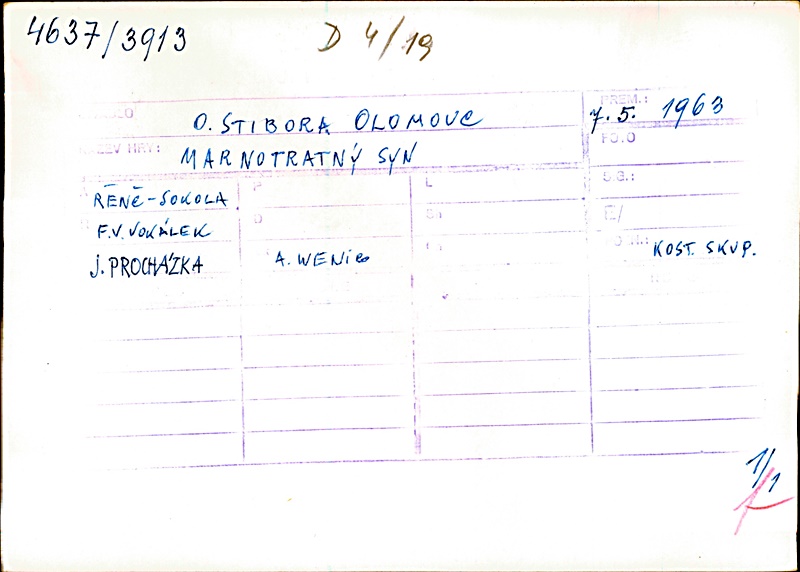 4637/3913
D 4/19
O. STIBORA OLOMOUC
PREM.: 7. 5. 1963
NÁZEV HRY: MARNOTRATNÝ SYN
FO.O
S.G.:
RÉNÉ-SOKOLA
P
L
E/
F.V. VOKÁLEK
D
J. PROCHÁZKA
KOST. SKUP.
1/1